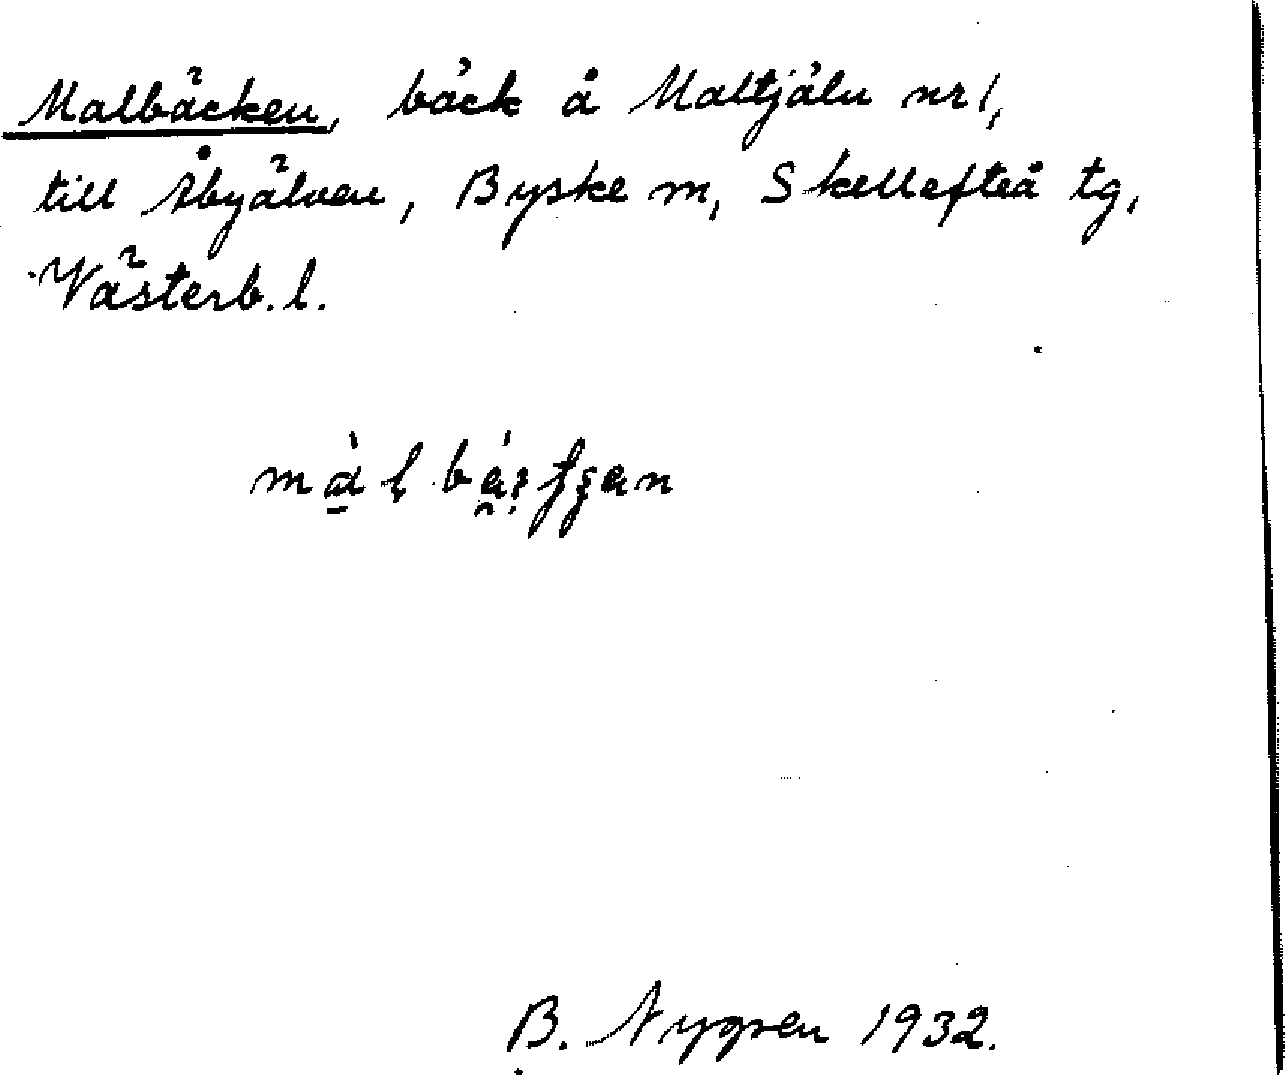 Malbäcken, bäck å Maltjäln nr 1,
till Åbyälven, Byske sn, Skellefteå tg,
Västerb. l.
B. Nygren 1932.